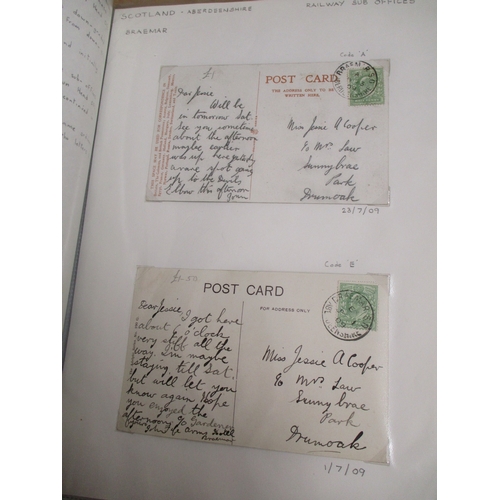 SCOTLAND - ABERDEENSHIRE
RAILWAY SUB OFFICES
BRAEMAR
Code 'A'
£1
POST CARD
THE ADDRESS ONLY TO BE
WRITTEN HERE.
Dear Jessie
Will be
in tomorrow Sat.
See you sometime
about the afternoon
maybe earlier
was up here yesterday
up to the Devils
Elbow this afternoon
John
Miss Jessie A Cooper
c/o Mrs Law
Sunnybrae
Park
Drumoak
23/7/09
Code 'B'
POST CARD
FOR ADDRESS ONLY
Dear Jessie,
I got here
about 6 o'clock
very stiff all the
way. I'm maybe
staying till Sat.
but will let you
know again. Hope
you enjoyed the
afternoon
John
Arms Hotel
Braemar
Miss Jessie A Cooper
c/o Mrs Law
Sunny brae
Park
Drumoak
1/7/09